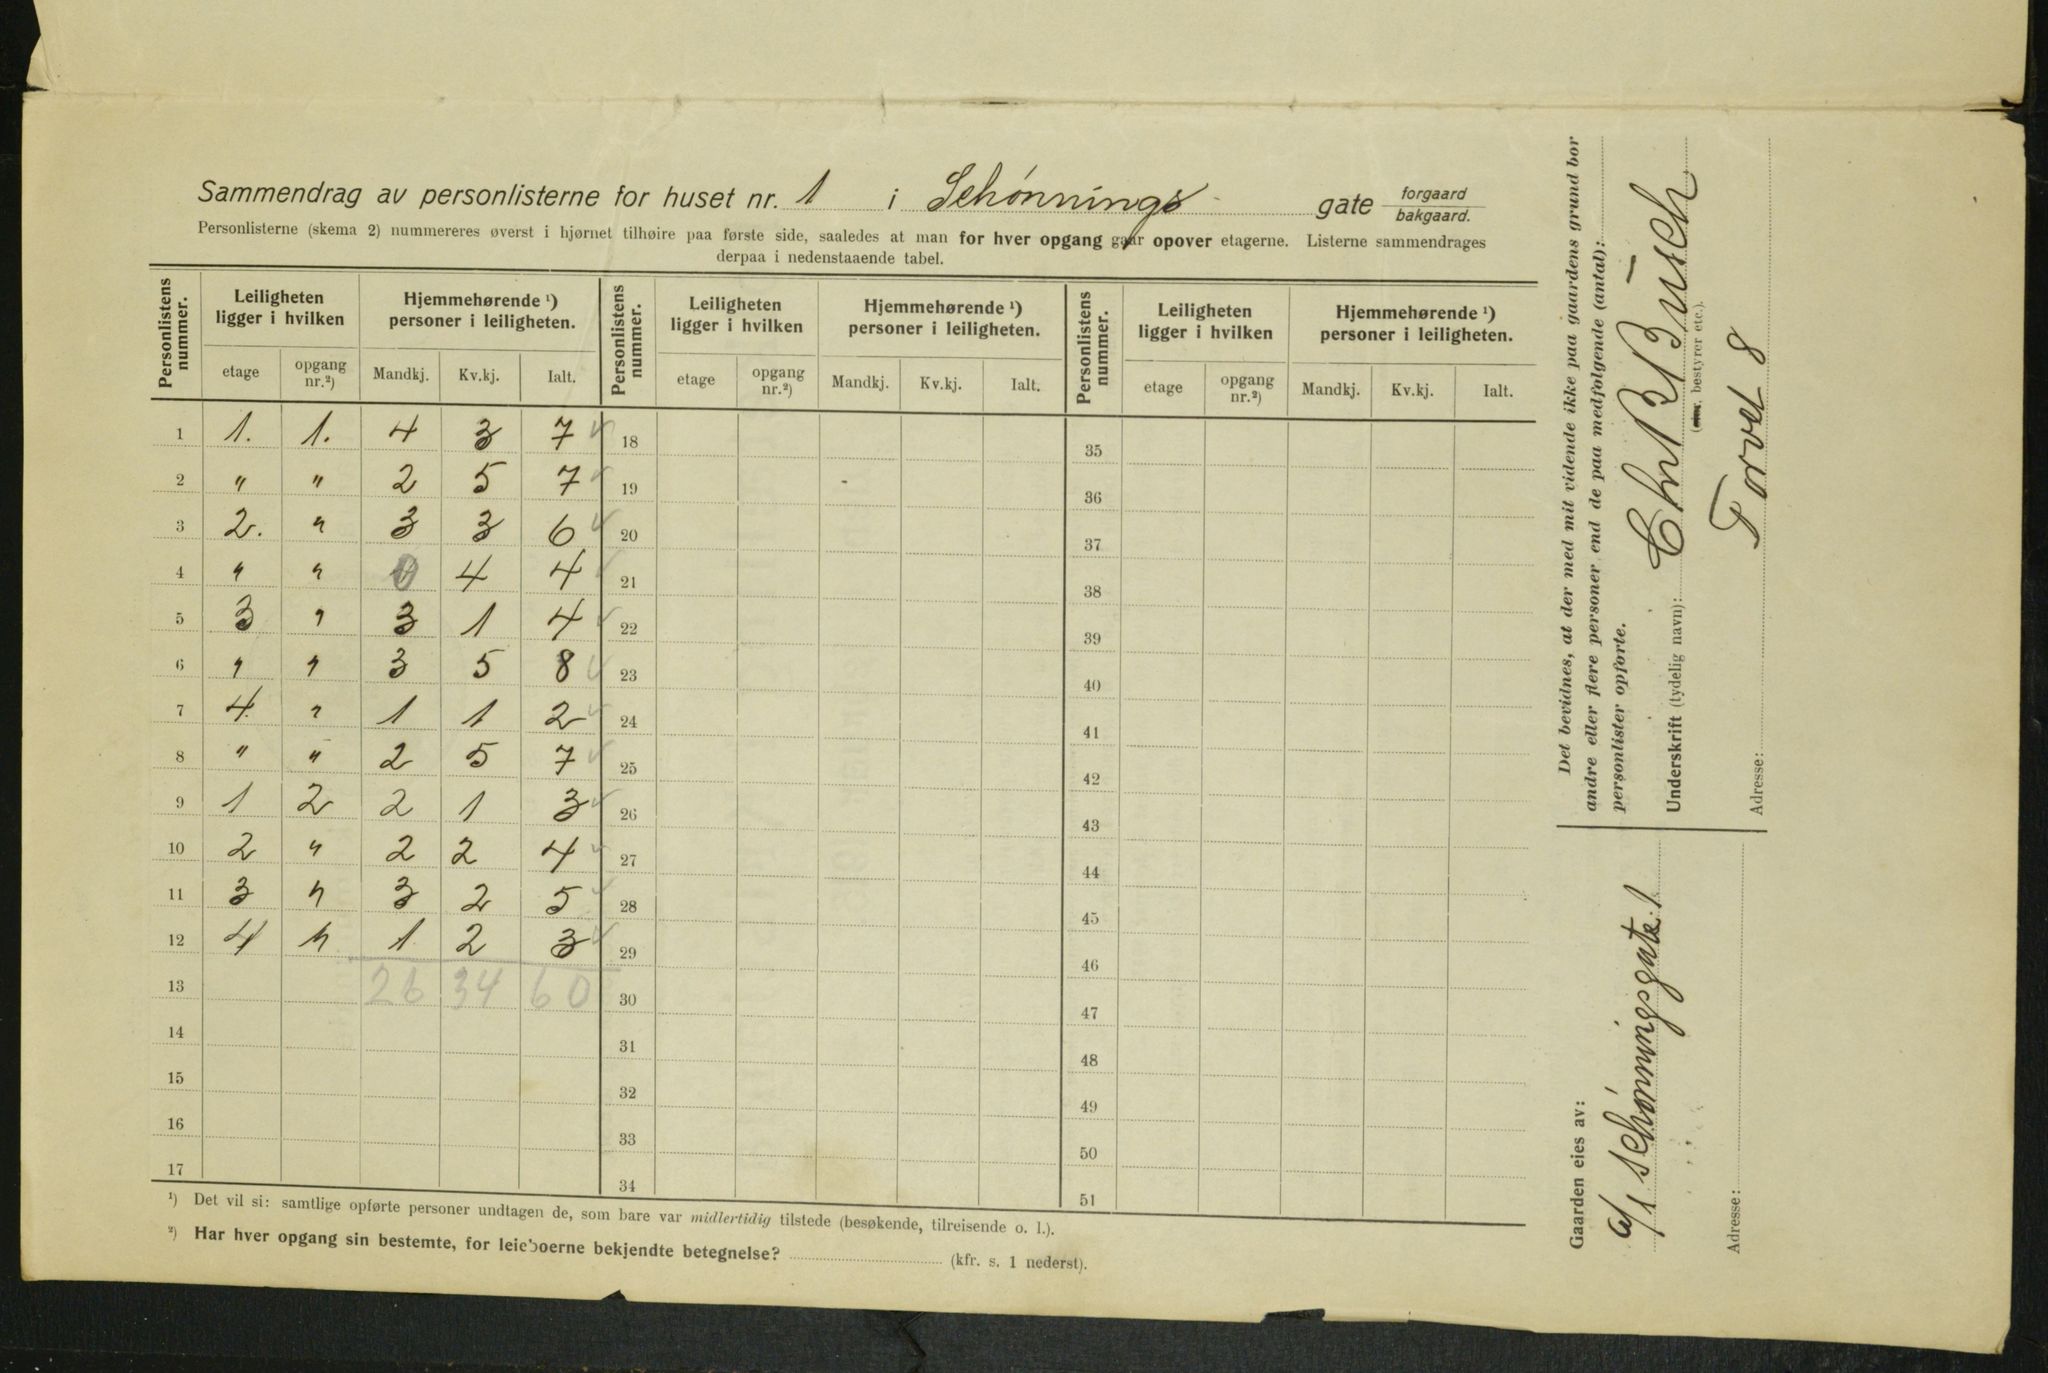 Sammendrag av personlisterne for huset nr. 1 i Schønnings gate forgaard bakgaard.
Personlisterne (skema 2) nummereres øverst i hjørnet tilhøire paa første side, saaledes at man for hver opgang gaar opover etagerne. Listerne sammendrages
derpaa i nedenstaaende tabel.
Personlistens nummer. Leiligheten ligger i hvilken Hjemmehørende ¹) personer i leiligheten. Personlistens nummer. Leiligheten ligger i hvilken Hjemmehørende ¹) personer i leiligheten. Personlistens nummer. Leiligheten ligger i hvilken Hjemmehørende ¹) personer i leiligheten.
etage opgang nr.²) Mandkj. Kv.kj. Ialt. etage opgang nr.²) Mandkj. Kv.kj. Ialt. etage opgang nr.²) Mandkj. Kv.kj. Ialt.
1 1. 1. 4 3 7 18 35
2 " " 2 5 7 19 36
3 2. " 3 3 6 20 37
4 " " 0 4 4 21 38
5 3 " 3 1 4 22 39
6 " " 3 5 8 23 40
7 4. " 1 1 2 24 41
8 " " 2 5 7 25 42
9 1 2 2 1 3 26 43
10 2 " 2 2 4 27 44
11 3 " 3 2 5 28 45
12 4 " 1 2 3 29 46
13 26 34 60 30 47
14 31 48
15 32 49
16 33 50
17 34 51
¹) Det vil si: samtlige opførte personer undtagen de, som bare var midlertidig tilstede (besøkende, tilreisende o. l.).
²) Har hver opgang sin bestemte, for leieboerne bekjendte betegnelse? (kfr. s. 1 nederst).
Det bevidnes, at der med mit vidende ikke paa gaardens grund bor
andre eller flere personer end de paa medfølgende (antal):
personlister opførte.
Underskrift (tydelig navn): Chr Büsch
bestyrer etc.).
Torvet 8
Adresse:
Gaarden eies av:
a/s Schønningsgate 1
Adresse: